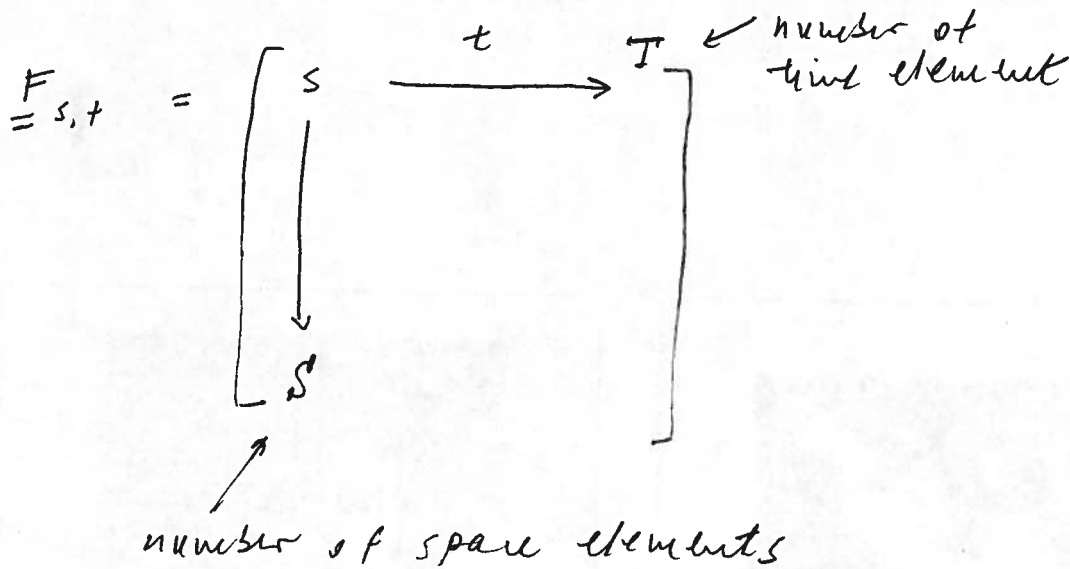 t T ← number of
time element
F s,t = [ s → ]
↓
S
number of space elements